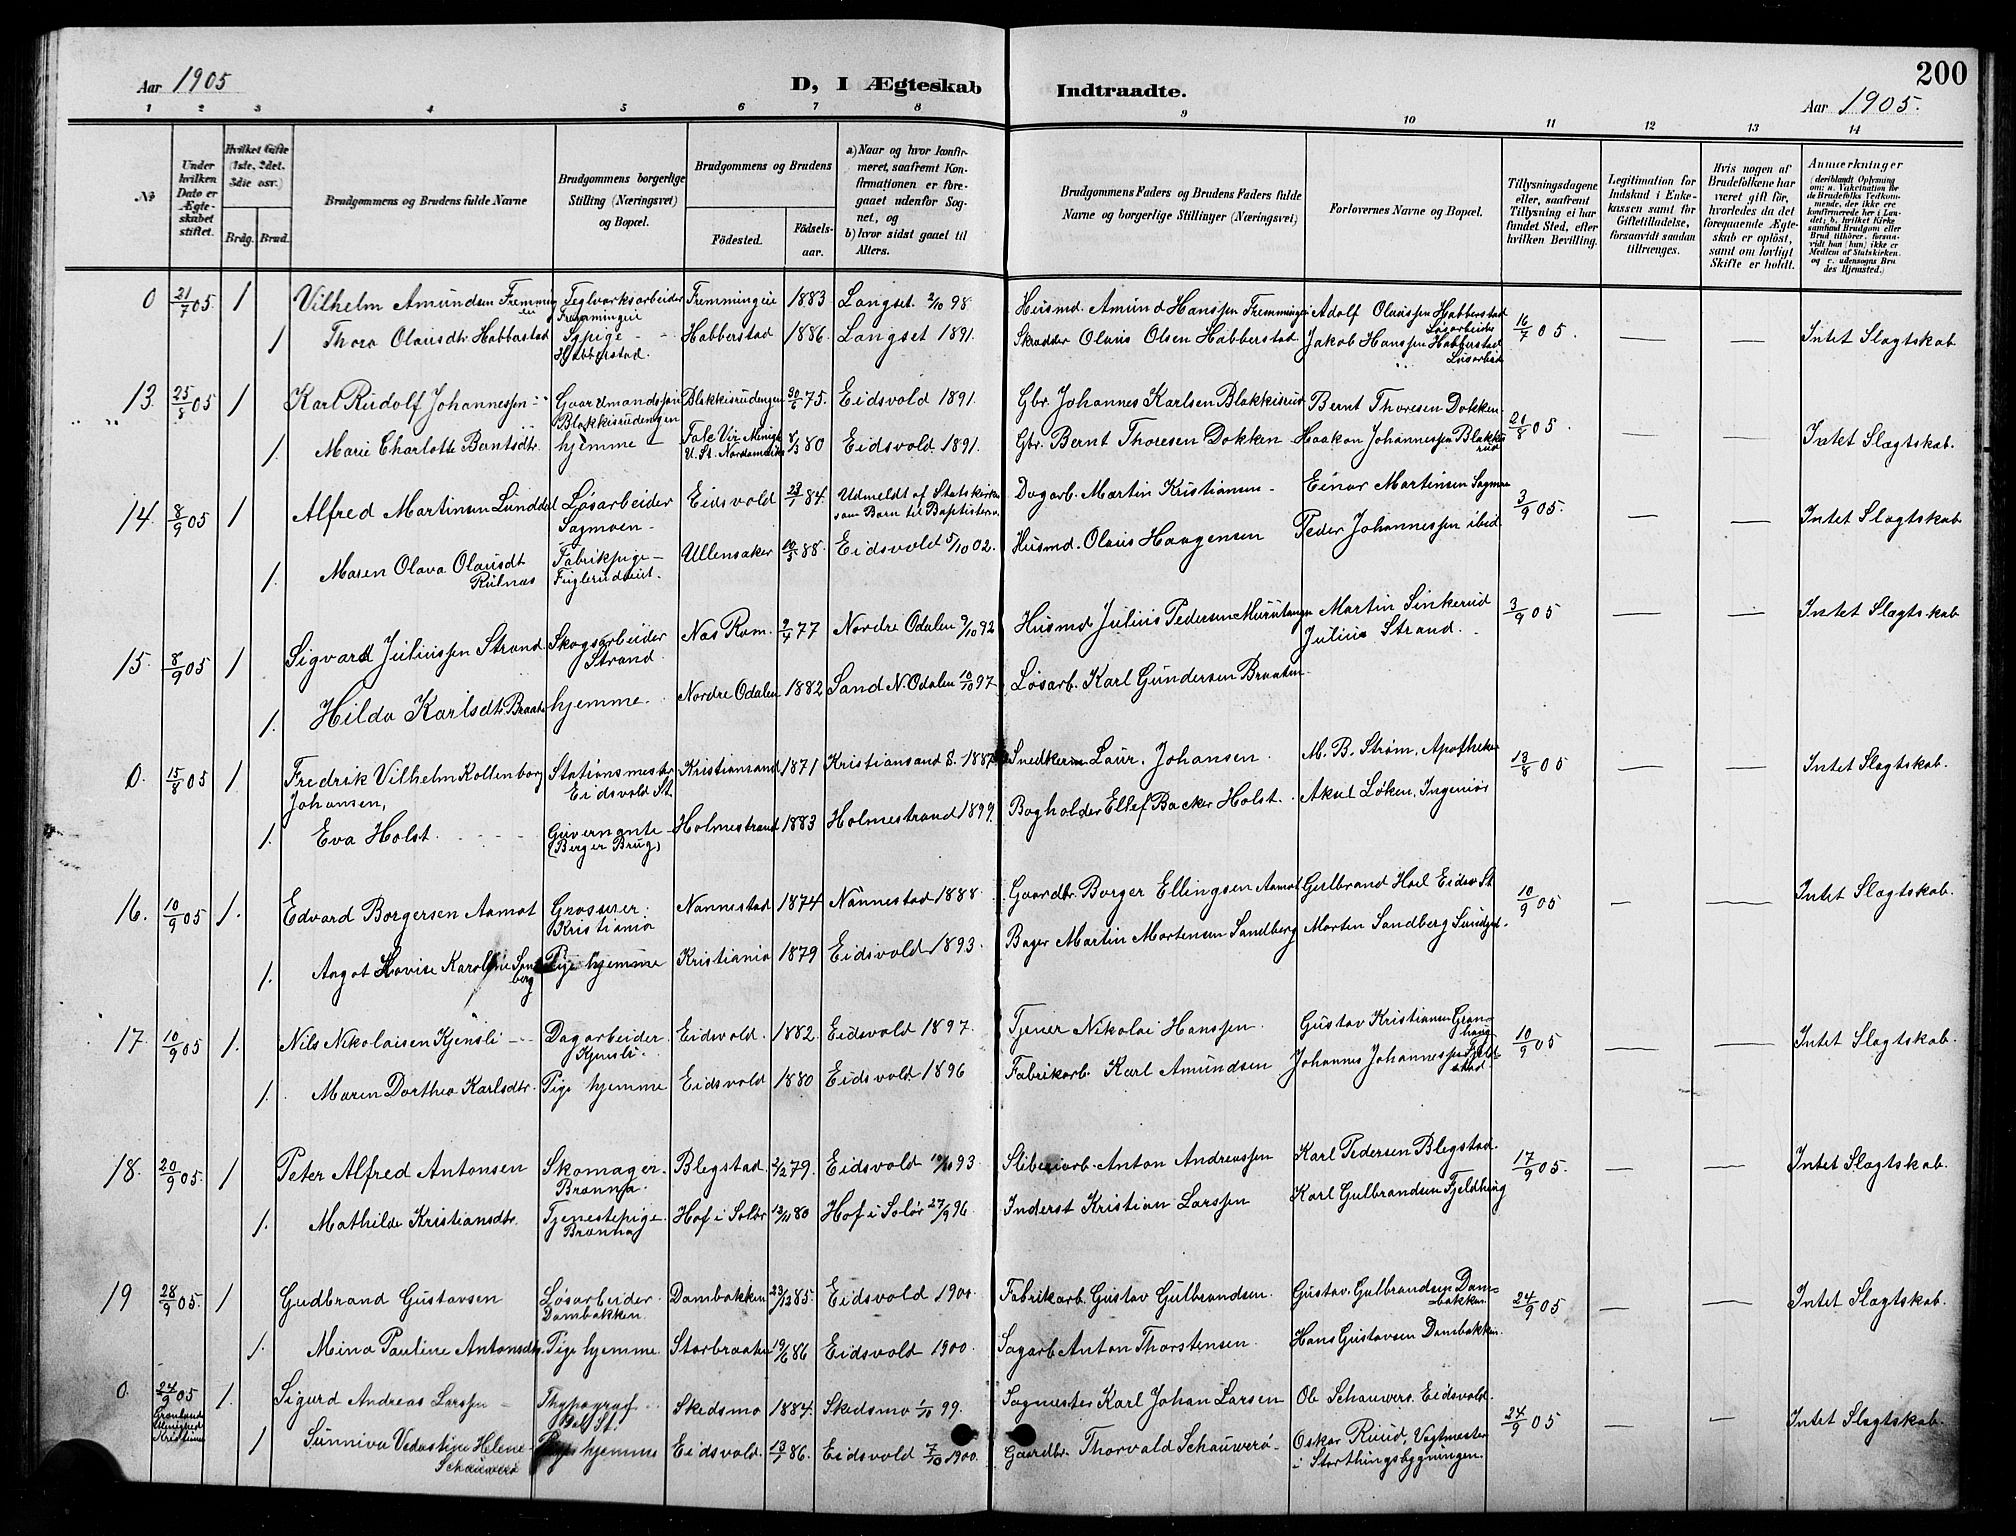 Aar 1905
D, I Ægteskab
Indtraadte.
200
Aar 1905.
1 2 3 4 5 6 7 8 9 10 11 12 13 14
No
Under hvilken Dato er Ægteskabet stiftet.
Hvilket Gifte (1ste, 2det, 3die osv.)
Brdg. Brud.
Brudgommens og Brudens fulde Navne
Brudgommens borgerlige Stilling (Næringsvei) og Bopæl.
Brudgommens og Brudens
Födested.
Födselsaar.
a) Naar og hvor konfirmeret, saafremt Konfirmationen er foregaaet udenfor Sognet, og
b) hvor sidst gaaet til Alters.
Brudgommens Faders og Brudens Faders fulde Navne og borgerlige Stillinger (Næringsvei)
Forlovernes Navne og Bopæl.
Tillysningsdagene eller, saafremt Tillysning ei har fundet Sted, efter hvilken Bevilling.
Legitimation for Indskud i Enkekassen samt for Giftetilladelse, forsaavidt saadan tiltrænges.
Hvis nogen af Brudefolkene har været gift før, hvorledes da det foregaaende Ægteskab er oplöst, samt om lovligt Skifte er holdt.
Anmærkninger
(deriblandt Oplysning om: a. Vakcination for de Brudefolks Vedkommende, der ikke ere konfirmerede her i Landet; b. hvilket Kirkesamfund Brudgom eller Brud tilhörer, forsaavidt han (hun) ikke er Medlem af Statskirken, og c. udensogns Brudes Hjemsted.)
0 21/7 05 1 Vilhelm Amundsen Fremmingei Teglverksarbeider Fremmingeie Fremmingeie 1883 Langset 2/10 98 Husmd. Amund Hanssen Fremmingei Adolf Olaussen Habberstad Løsarbeider 16/7 05. — — Intet Slagtskab
1 Thora Olausdtr Habberstad Sypige Habberstad. Habberstad 1886 Langset 1891. Skrædder Olaus Olsen Habberstad Jakob Hanssen Habberstad Løsarbeid
13. 25/8 05 1 Karl Rudolf Johannessen Gaardmandssøn Blakkisrudengen Blakkisrudengen 30/6 75. Eidsvold 1891. Gbr. Johannes Karlsen Blakkisrud Bernt Thoresen Dokken 20/8 05. — — Intet Slagtskab.
1. Marie Charlotte Berntsdtr. hjemme 8/3 80 Eidsvold 1891. Gbr. Bernt Thoresen Dokken Haakon Johannessen Blakkisrud
14. 8/9 05 1 Alfred Martinsen Lunddal Løsarbeider Sagmoen Eidsvold 84. Udmeldt af Statskirken som Barn til Baptisterne. Dagarb. Martin Kristiansen Einar Martinsen Sagmoen 3/9 05. — — Intet Slagtskab
1. Maren Olava Olausdt Rulnæs Fabrikpige Fuglerudeiet. Ullensaker 88. Eidsvold 5/10 02. Husmd. Olaus Haagensen Peder Johannessen ibid
15. 8/9 05 1 Sigvard Juliussen Strand Skogsarbeider Strand. Næs Rom. 9/4 77 Nordre Odalen 9/10 92 Husmd Julius Pedersen Murutangen Martin Sinkerud Julius Strand. 3/9 05 — — Intet Slagtskab
1. Hilda Karlsdtr Braate hjemme. Nordre Odalen 1882 Sand N. Odalen 10/10 97 Løsarb. Karl Gundersen Braaten
0. 15/8 05 1 Fredrik Vilhelm Kollenborg Johansen, Stationsmester Eidsvold St Kristiansand 1871 Kristiansand S. 1887 Snedkerm Laur. Johansen. M. B. Strøm, Apotheker 13/8 05 — — Intet Slagtskab.
1. Eva Holst. Guvernante (Berger Brug) Holmestrand 1883 Holmestrand 1899. Bogholder Ellef Backer Holst. Aksel Løken, Ingeniør
16. 10/9 05 1. Edvard Borgersen Aamot Grosserer. Kristiania Nannestad 1874 Nannestad 1888. Gaardbr. Borger Ellingsen Aamot Gulbrand Hoel Eidsv St 10/9 05 — — Intet Slagtskab.
1. Aagot Lovise Karoline Sandberg Pige hjemme Kristiania 1879 Eidsvold 1893. Bager Martin Mortensen Sandberg Morten Sandberg Sundet.
17. 10/9 05 1. Nils Nikolaisen Kjensli Dagarbeider Kjensli. Eidsvold. 1882. Eidsvold 1897. Tjener Nikolai Hanssen. Gustav Kristiansen Granhaug 10/9 05 — — Intet Slagtskab.
1. Maren Dorthea Karlsdtr. Pige hjemme Eidsvold 1880 Eidsvold 1896 Fabrikarb. Karl Amundsen Johannes Johannessen Fjeldstad
18. 20/9 05. 1 Peter Alfred Antonsen Skomager. Brønna. Blegstad 2/2 79. Eidsvold 10/10 93 Sliberiarb. Anton Andreassen Karl Pedersen Blegstad. 17/9 05. — — Intet Slagtskab.
1. Mathilde Kristiansdtr. Tjenestepige. Hof i Solør 80 Hof i Solør 27/9 96 Inderst Kristian Larssen Karl Gulbrandsen Fjeldhaug
19 28/9 05. 1 Gudbrand Gustavsen Løsarbeider. Dambakken. Dambakken 23/12 85. Eidsvold 1900. Fabrikarb. Gustav Gulbrandsen. Gustav. Gulbrandsen Dambakken 24/9 05 — — Intet Slagtskab.
1. Mina Pauline Antonsdtr. Pige hjemme. Storbraaten 19/6 86 Eidsvold 1900. Sagarb Anton Thorstensen. Hans Gustavsen Dambakken.
0. 24/9 05 Grønlands Menighed Kristiania 1. Sigurd Andreas Larssen Thypograf Skedsmo 1884. Skedsmo 1/10 99. Sagmester Karl Johan Larsen Ob Schauwerø. Eidsvold. 24/9 05 — — Intet Slagtskab.
1 Sunniva Vedastine Helene Schauwerø Pige hjemme Eidsvold. 86. Eidsvold 7/10 1900. Gaardbr. Thorvald Schauwerø Oskar Ruud, Vagtmester i Storthingsbygningen.